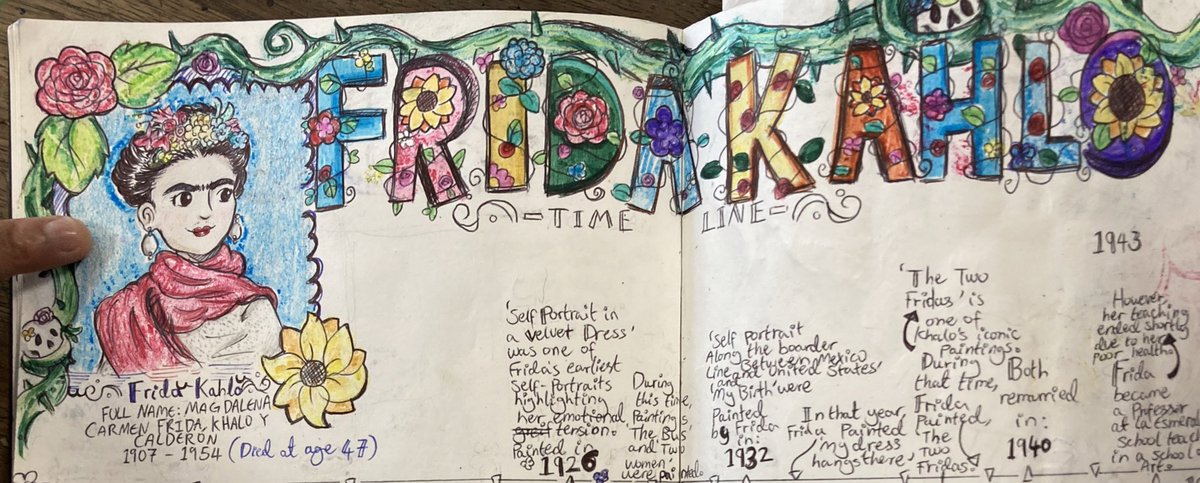 FRIDA KAHLO
TIME LINE
Frida Kahlo
FULL NAME: MAGDALENA
CARMEN FRIDA, KHALO Y
CALDERON
1907 - 1954 (Died at age 47)
'Self Portrait in
a velvet Dress'
was one of
Frida's earliest
Self-Portraits
highlighting
her emotional
great tension.
Painted in
1926
During
this time,
Paintings,
'The Bus'
and Two
women'
were painted.
'Self Portrait
Along the boarder
Line Between Mexico
and United States'
and
'my Birth' were
Painted
by Frida
in:
1932
In that year,
Frida Painted
'my dress
hangs there,
'The Two
Fridas' is
one of
Khalo's iconic
Paintings.
During
that time,
Frida
Painted,
The
Two
Fridas.
Both
remarried
in:
1940
1943
However,
her teaching
ended shortly
due to her
Poor health.
Frida
became
a Professor
at La Esmera
School teach
in a school
Art